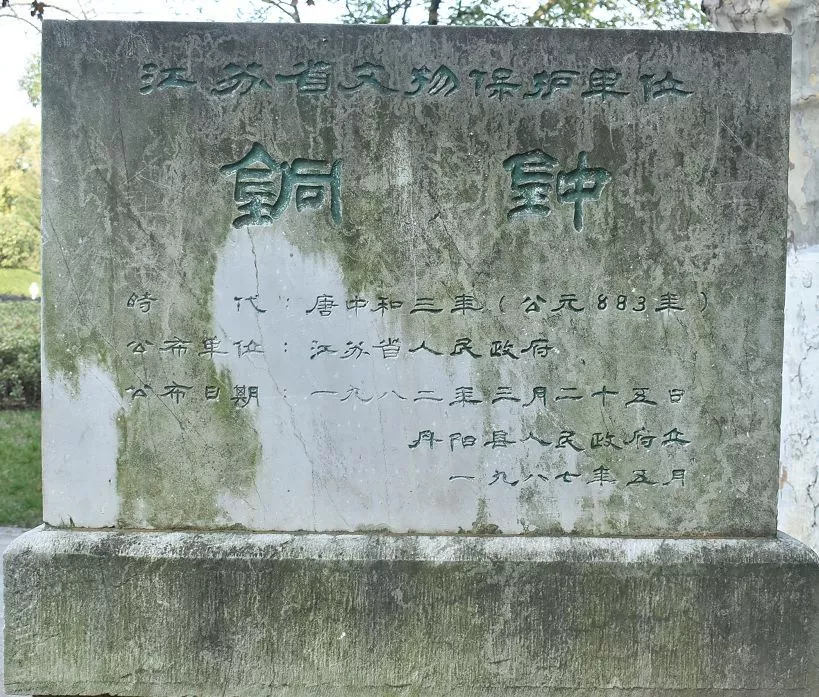 江苏省文物保护单位
銅鈡
時代：唐中和三年（公元883年）
公布单位：江苏省人民政府
公布日期：一九八二年三月二十五日
丹阳县人民政府立
一九八七年五月